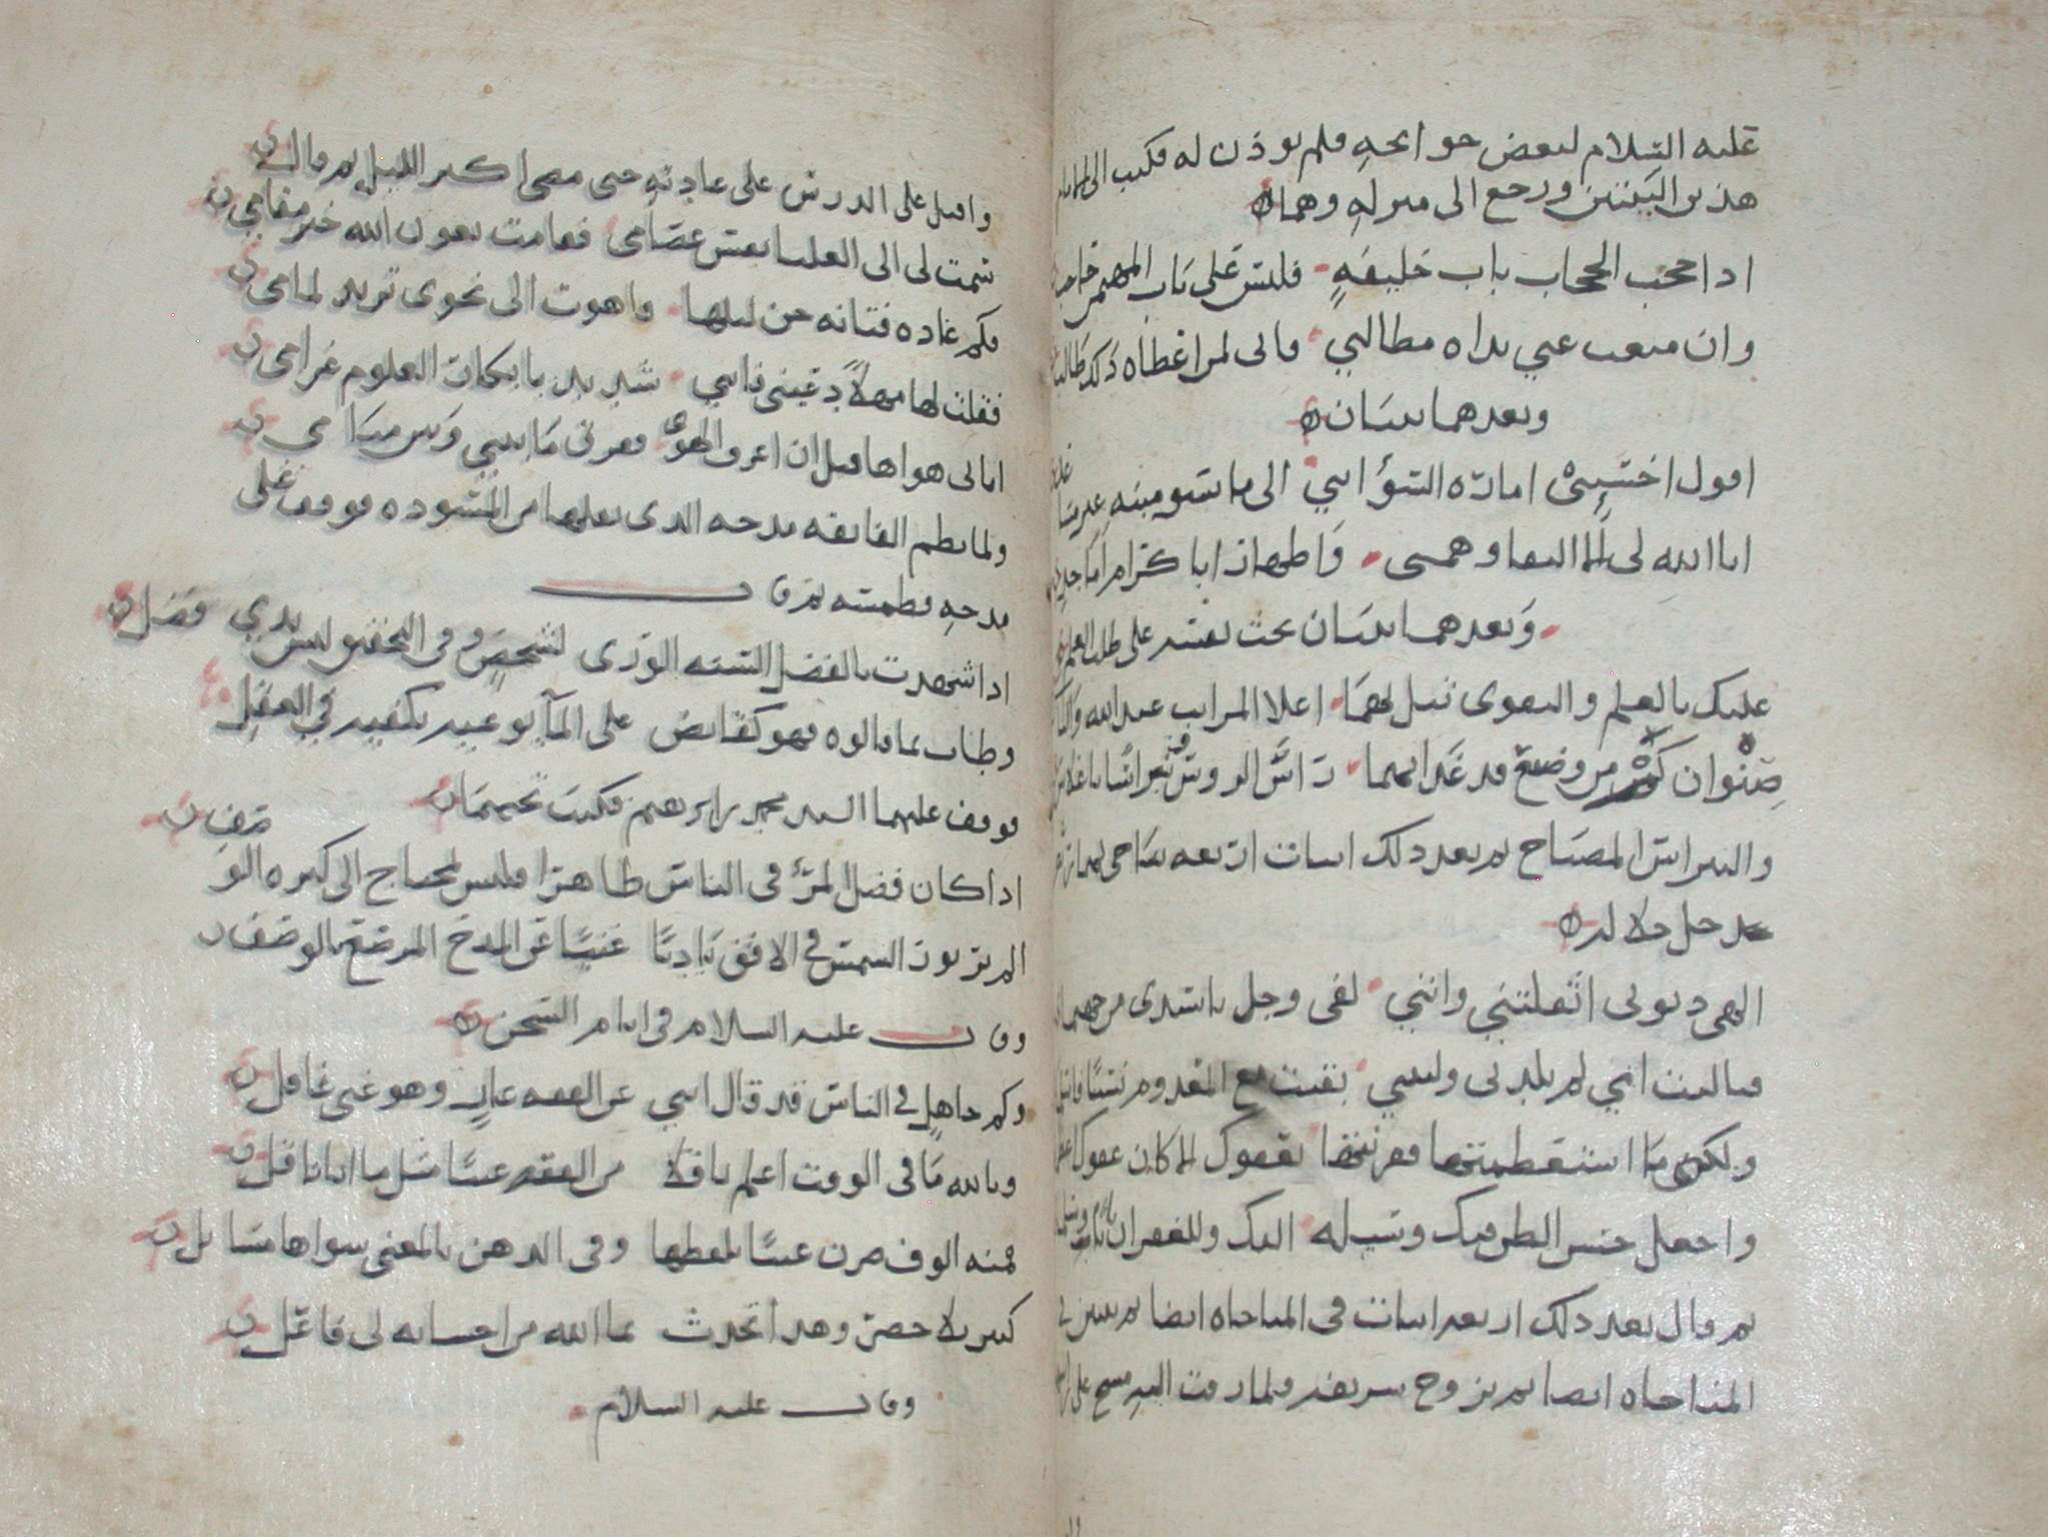 عليه السلام لبعض حوائجه فلم يوذن له فكتب الى الامام
هذين البيتين ورجع الى منزله وهما
اذا حجب الحجاب باب خليفة فليس على باب المهيمن حاجب
وان منعت عني يداه مطالبي فاني لمن اعطاه ذلك طالب
وبعدهما بيتان
اقول اختشي امارة السؤ انني الى ما
ابا الله لي الا التقا و واطهار ابا كرام
وبعدهما بيتان بحث نفسه على طلب العلم
عليك بالعلم والتقوى تنل بهما اعلا المراتب عند الله
صنوان كم من وضيع قد غدا بهما راس الروس
والنبراس المصباح ثم بعد ذلك ابيات اربعه يناجي بهما
جل جلاله
الهي ذنوبي اثقلتني وانني لفي وجل يا سيدي من
فيا ليت امي لم تلدني وليتني بقيت مع المعدوم نسيا
ولكن ما استعظمتها فقرنتها بعفوك الا كان عفوك
واجعل حسن الظن فيك وسيله اليك وللغفران
ثم قال بعد ذلك اربعه ابيات في المناجاه ايضا ثم بيتين في
المناجاه ايضا ثم تزوج بشريفه ولما زفت اليه مسح على
واقبل على الدرس على عادته حتى مضى اكثر الليل ثم قال
سمت لي الى العليا بعض عصامي فقامت بعون الله خير مقامي
وكم غاده فتانه حن ليلها واهوت الى نحوي تريد لمامي
فقلت لها مهلا دعيني فانني شديد بابكار العلوم غرامي
اتاني هواها قبل ان اعرف الهوى ففرق ما بيني وبين منامي
ولما نظم الفايقه مدحه الذي نقلها من المسوده فوقف على
مدحه فطمسه ثم قال
اذا شهدت بالفضل السنه الورى لشخص وفي التحقيق ليس بذي فضل
وطاب بما قالوه فهو كقابض على المآ
فوقف عليهما السيد محمد بن ابرهيم فكتب تحتهما
اذا كان فضل المرء في الناس ظاهرا فليس بمحتاج الى كثره الوصف
الم تر نور الشمس في الافق باديا غنيا عن المدح المرصع بالوصف
وقال عليه السلام في ايام السجن
وكم جاهل في الناس قد قال انني عن الفقه عار وهو غبي غافل
وبالله ما في الوقت اعلم ناقلا من الفقه غيبا مثل ما انا ناقل
فمنه الوف صرن غيبا بلفظها وفي الذهن بالمعنى سواها مسايل
كثير بلا حصر وهذا تحدث بما الله من احسانه لي فاعل
وقال عليه السلام